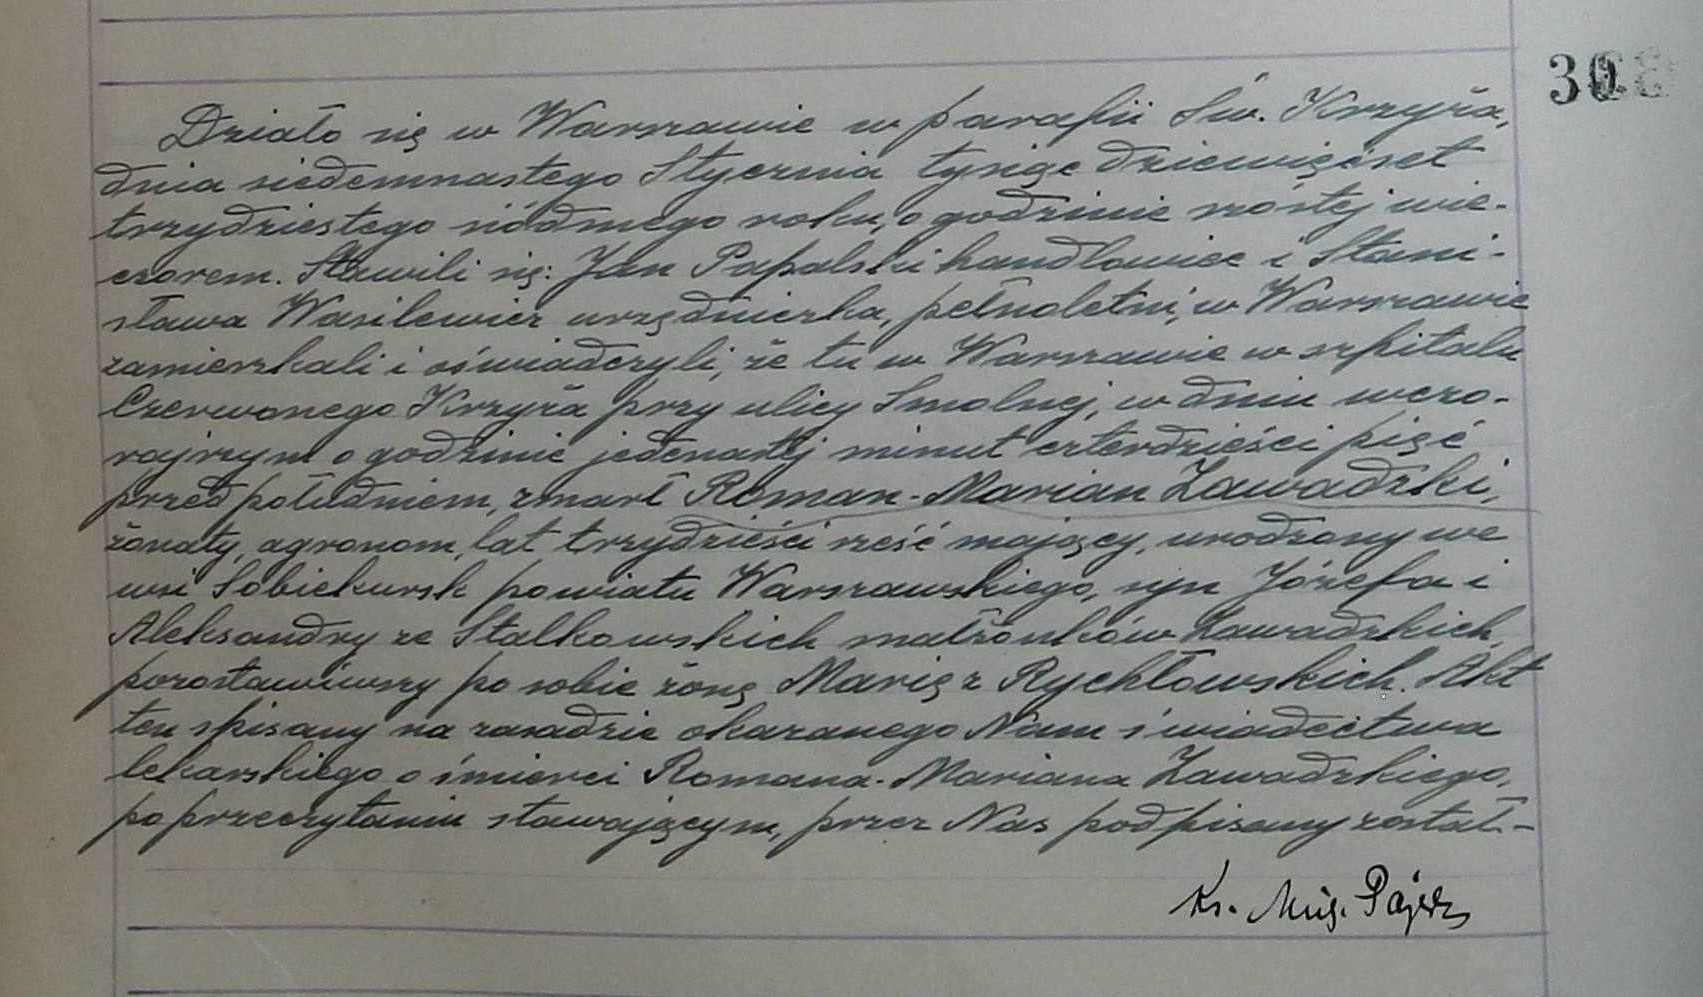 30
Działo się w Warszawie w parafii Św. Krzyża,
dnia siedemnastego Stycznia tysiąc dziewięćset
trzydziestego siódmego roku, o godzinie szóstej wie-
czorem. Stawili się: Jan Papalski handlowiec i Stani-
sława Wasilewicz urzędniczka, pełnoletni, w Warszawie
zamieszkali i oświadczyli, że tu w Warszawie w szpitalu
Czerwonego Krzyża przy ulicy Smolnej, w dniu wczo-
rajszym o godzinie jedenastej minut czterdzieści pięć
przed południem, zmarł Roman-Marian Zawadzki,
żonaty, agronom, lat trzydzieści sześć mający, urodzony we
wsi Sobiekursk powiatu Warszawskiego, syn Józefa i
Aleksandry ze Stalkowskich małżonków Zawadzkich,
pozostawiwszy po sobie żonę Marię z Rychłowskich. Akt
ten spisany na zasadzie okazanego Nam świadectwa
lekarskiego o śmierci Romana-Mariana Zawadzkiego,
po przeczytaniu stawającym, przez Nas podpisany został.-
Ks.